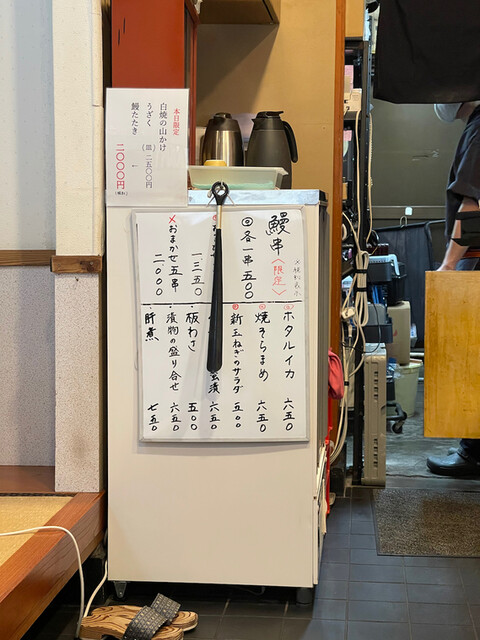 本日限定
白焼の山かけ
うざく (皿) 二五〇〇円
鰻たたき ー 二〇〇〇円
(税込)
※税別表示
鰻串〈限定〉
回各一串 五〇〇
一、三五〇
×おまかせ五串
二、〇〇〇
ホタルイカ 六五〇
焼そらまめ 六五〇
新玉ねぎのサラダ 五〇〇
漬 六五〇
板わさ 五〇〇
漬物の盛り合せ 六五〇
肝煮 七五〇